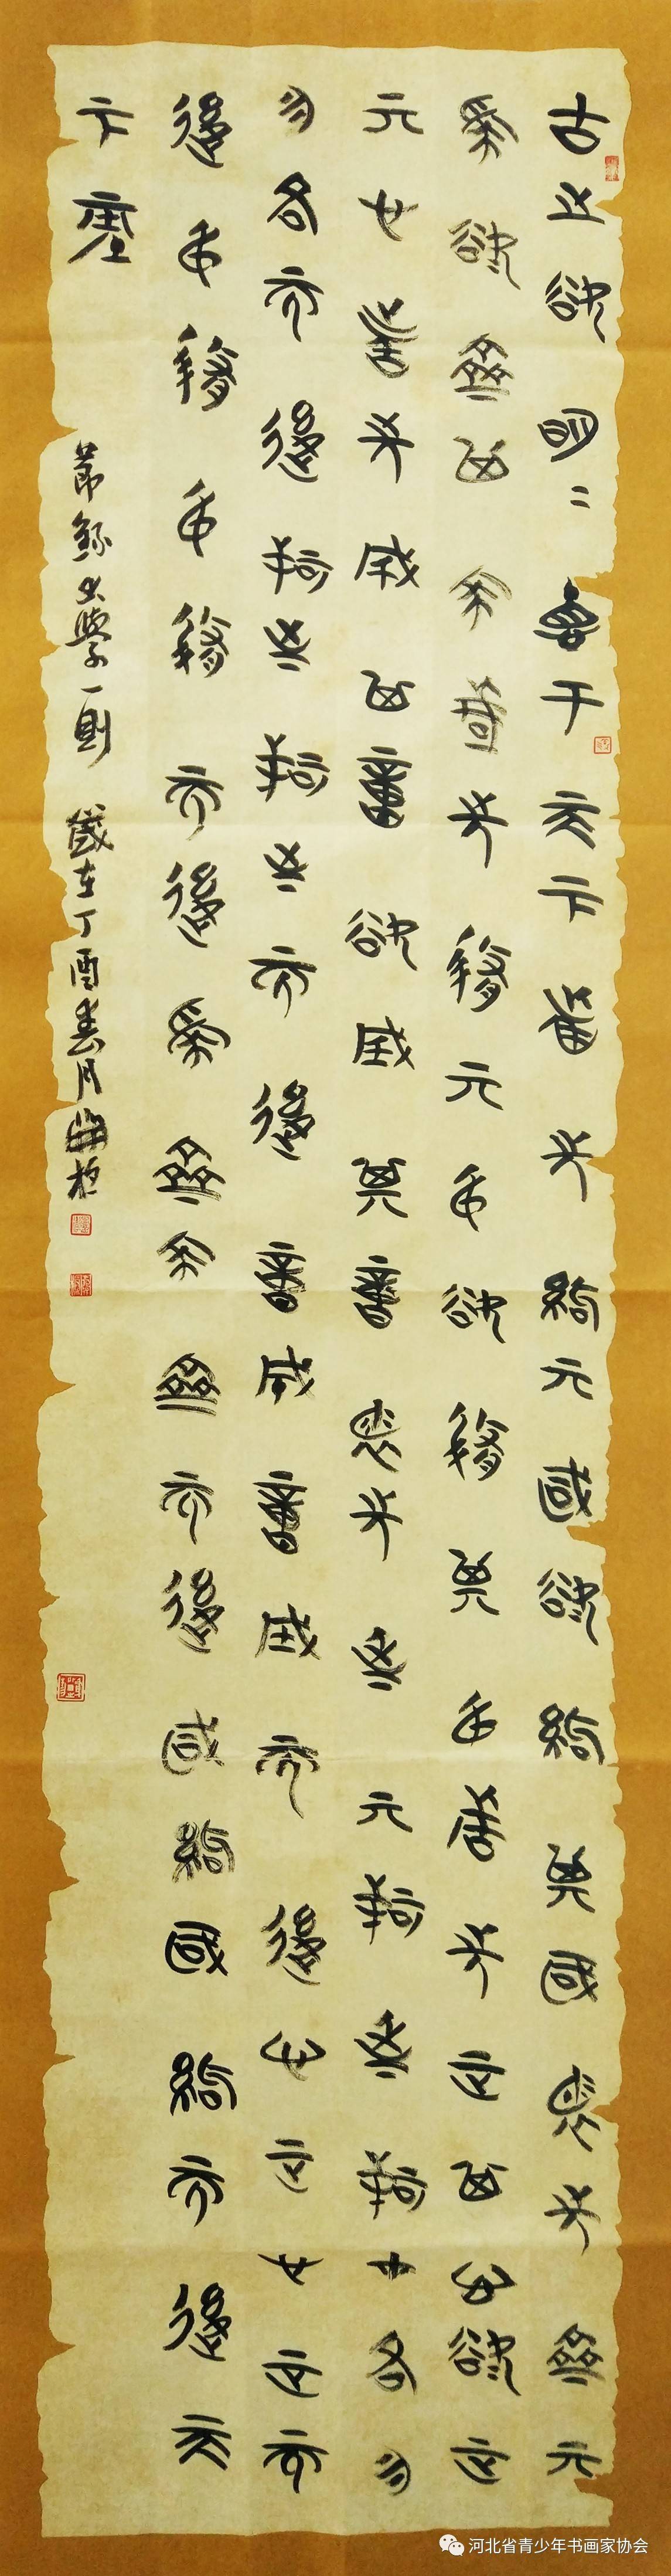 古之欲明=德于天下者先治其國欲治其國者先齊其
家欲齊其家者先脩其身欲脩其身者先正其心欲正
其心者先誠其意欲誠其意者先致其知致知在格物
物格而後知至知至而後意誠意誠而後心正心正而
後身脩身脩而後家齊家齊而後國治國治而後天
下平
節錄大學一則 歲在丁酉春月
河北省青少年书画家协会